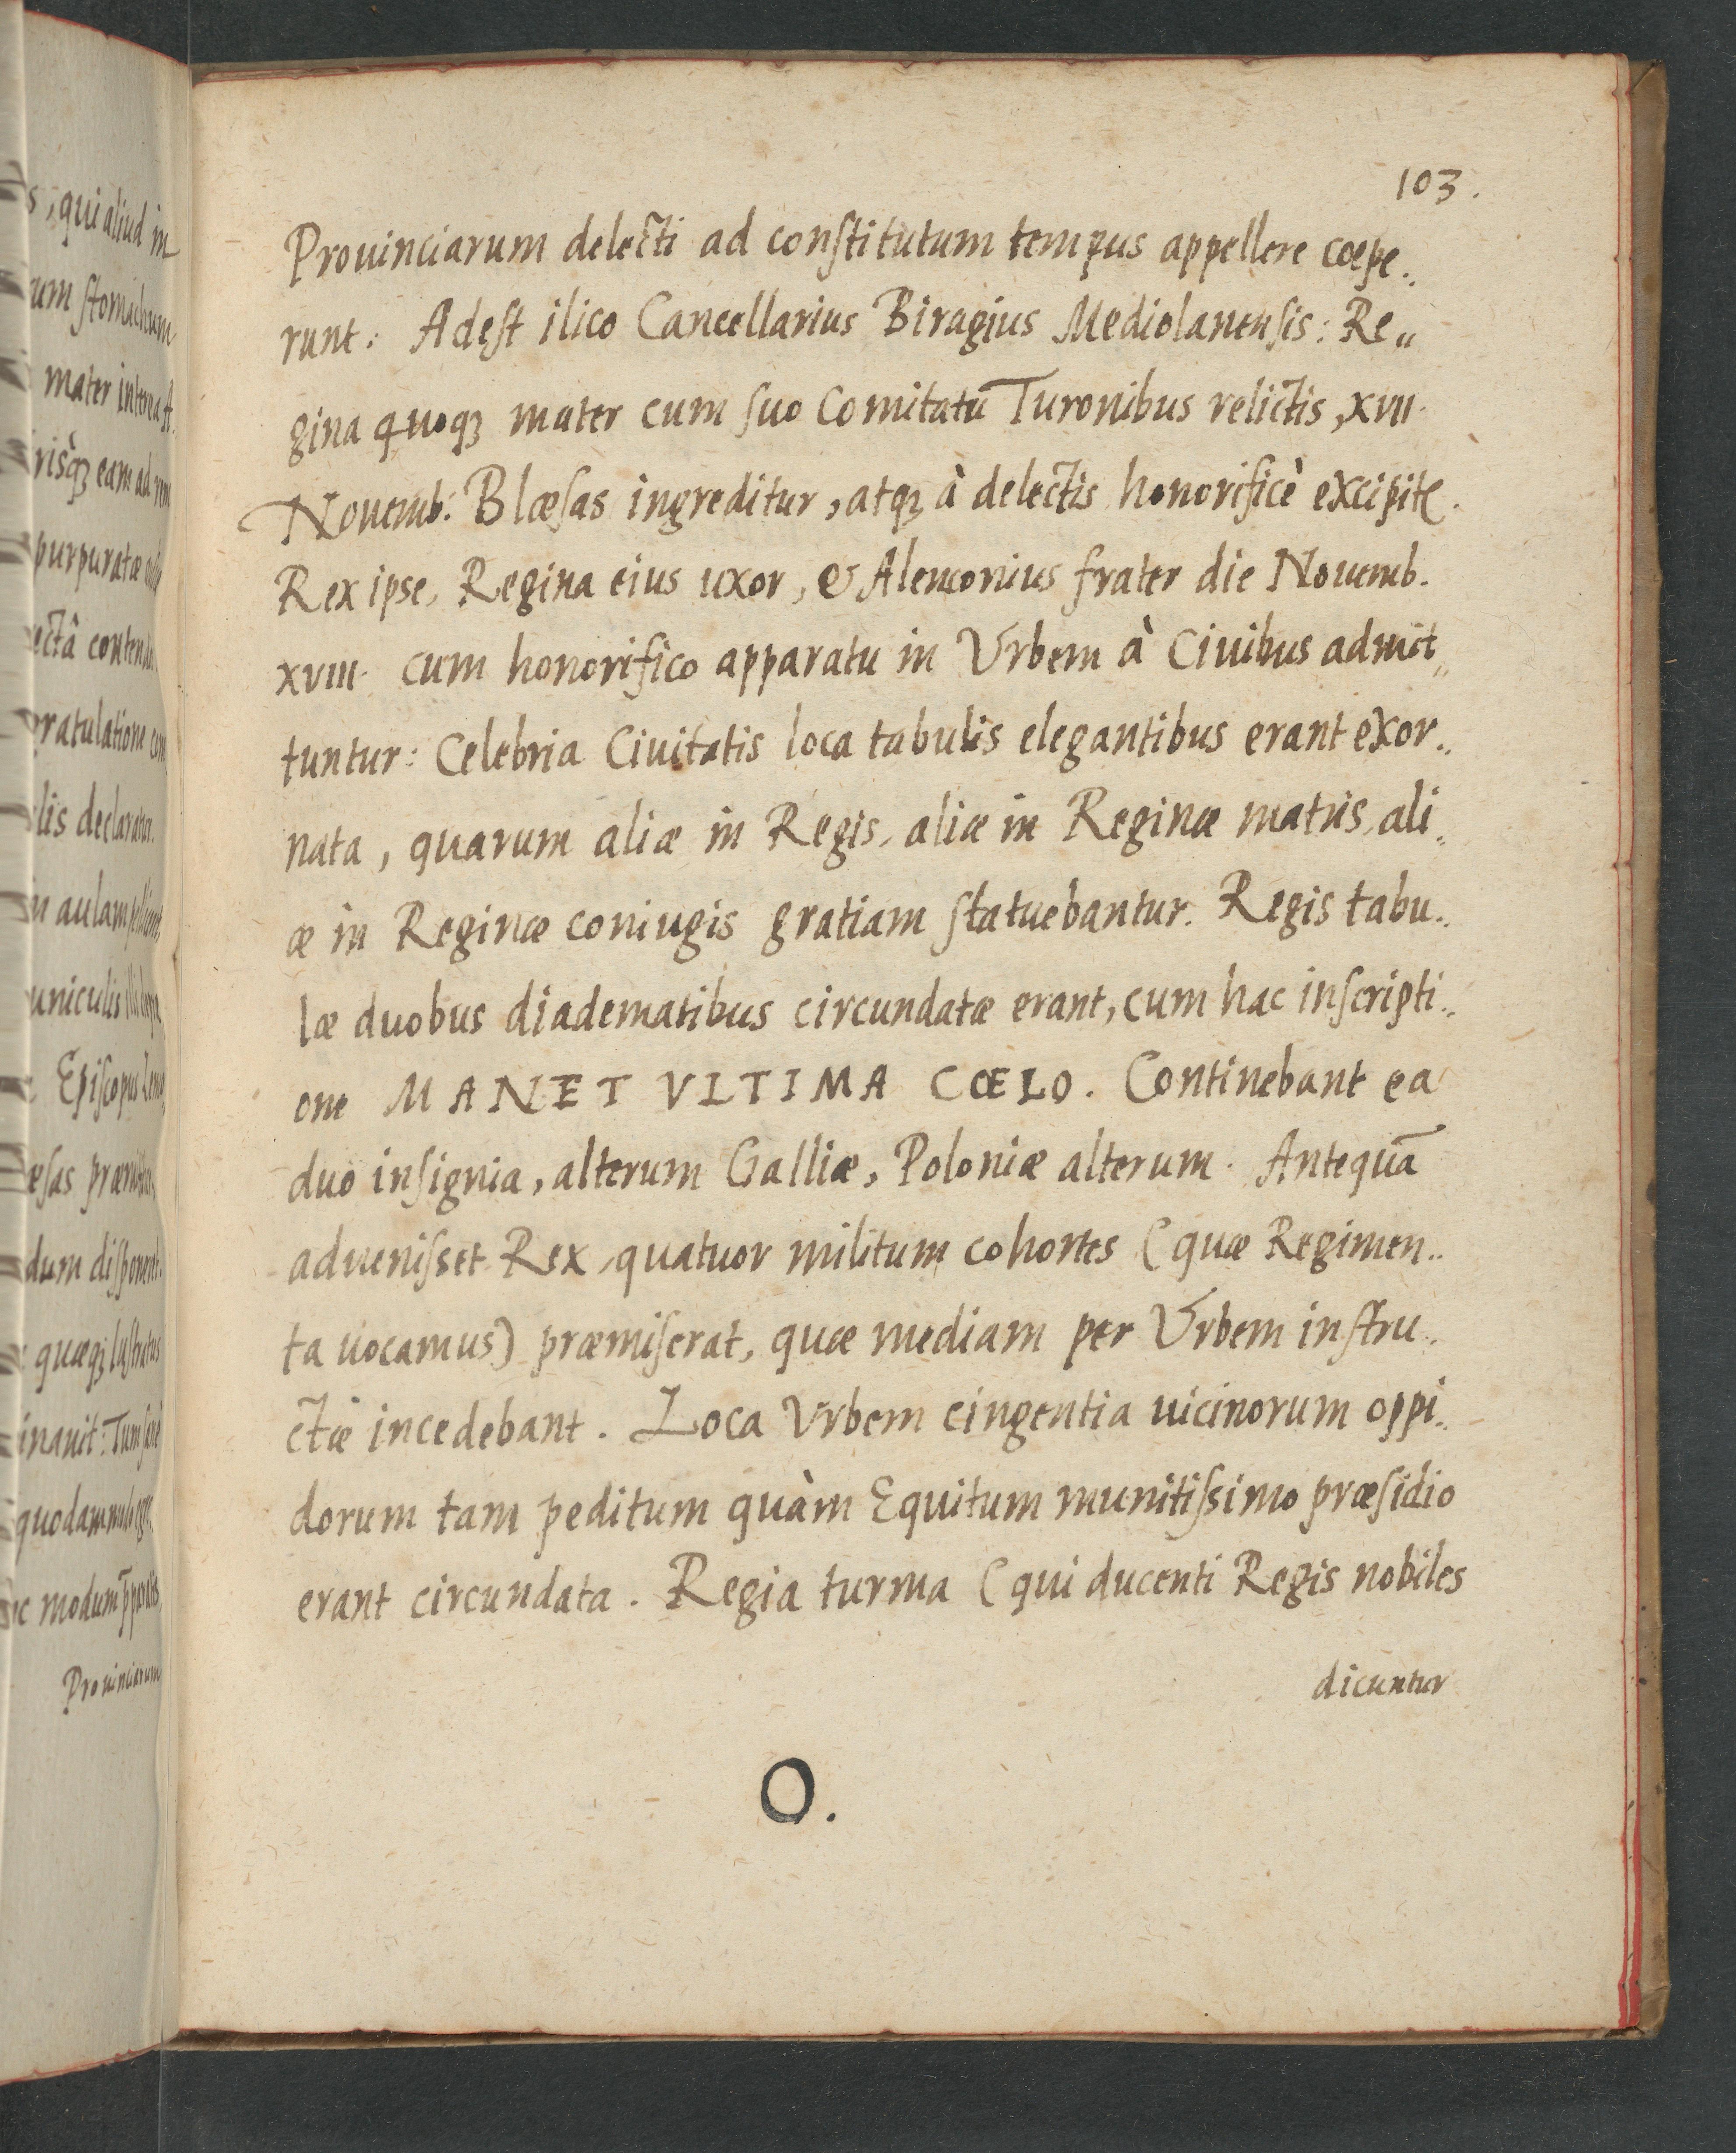 103.
Prouinciarum delecti ad conſtitutum tempus appellere cœpe..
runt: Adeſt ilico Cancellarius Biragius Mediolanenſis: Re„
gina quoqꝫ mater cum ſuo Comitatū Turonibus relictis, XVII.
Nouemb: Blæſas ingreditur, atqꝫ à delectis honorificè excipitꝭ.
Rex ipse, Regina eius uxor, & Alenconius frater die Nouemb.
XVIII. cum honorifico apparatu in Vrbem à Ciuibus admit„
tuntur: Celebria Ciuitatis loca tabulis elegantibus erant exor..
nata, quarum aliæ in Regis, aliæ in Reginæ matris, ali„
æ in Reginæ coniugis gratiam ſtatuebantur. Regis tabu..
læ duobus diadematibus circundatæ erant, cum hac inſcripti..
one MANET VLTIMA CŒLO. Continebant ea
duo inſignia, alterum Galliæ, Poloniæ alterum. Antequā
adueniſset Rex, quatuor militum cohortes (quæ Regimen..
ta uocamus) præmiſerat, quæ mediam per Vrbem inſtru..
ctæ incedebant. Loca Vrbem cingentia uicinorum oppi..
dorum tam peditum quàm Equitum munitiſsimo præſidio
erant circundata. Regia turma (qui ducenti Regis nobiles
dicuntur
O.
s, qui aliud in
mater interea
purpuratæ
lis declaratur.
Epiſcopus
Prouinciarum